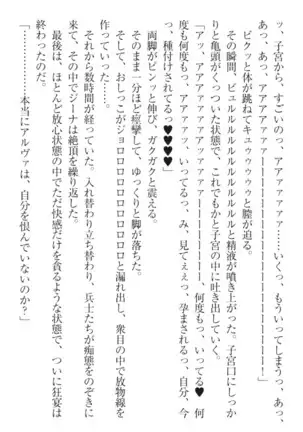 ッ、子宮から、アァァ、アァァァッ……いくっ、もういってしまうっ、あっ、
あっ、あっ、アアアアァァーーーーーーーーーーーーッ！」
ビクッと体が跳ねてキュゥゥゥゥと膣が迫る。
その瞬間、ビュルルルルルルルッと精液が噴き上がった。子宮口にしっか
りと亀頭がくっついた状態で、これでもかと子宮の中に吐き出していく。
「アッ、アアアアァァァァァーーーーーーーー、何度もっ、いってる♥　何
度も何度もっ、アアアアァァッ、いってるっ、み、見てぇぇっ、孕まされるっ、自分、今
っ、種付けされてるっ♥♥♥♥」
両脚がピンッと伸び、ガクガクと震える。
そのまま一分ほど痙攣して、ゆっくりと脚が落ちた。
そして、おしっこがジョロロロロロロロロと漏れ出し、衆目の中で放物線を
作っていった。
それから数時間が経っていた。入れ替わり立ち替わり、兵士たちが痴態をのぞきに
来て、その中でジーナは絶頂を繰り返した。
最後は、ほとんど放心状態の中でただ快感だけを貪るような状態で、ついに狂宴は
終わったのだ。
「………本当にアルヴァは、自分を恨んでいないのか？」